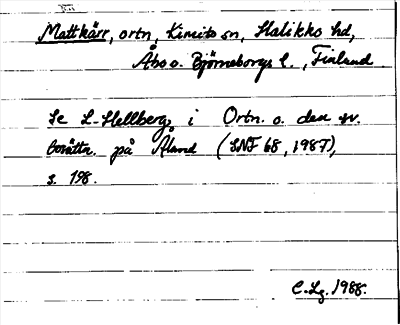 Mattkärr, ortn, Kimito sn, Halikko hd,
Åbo o. Björneborgs l., Finland
Se L. Hellberg i Ortn. o. den sv.
bosättn. på Åland (SNF 68, 1987),
s. 198.
C. Lg. 1988.